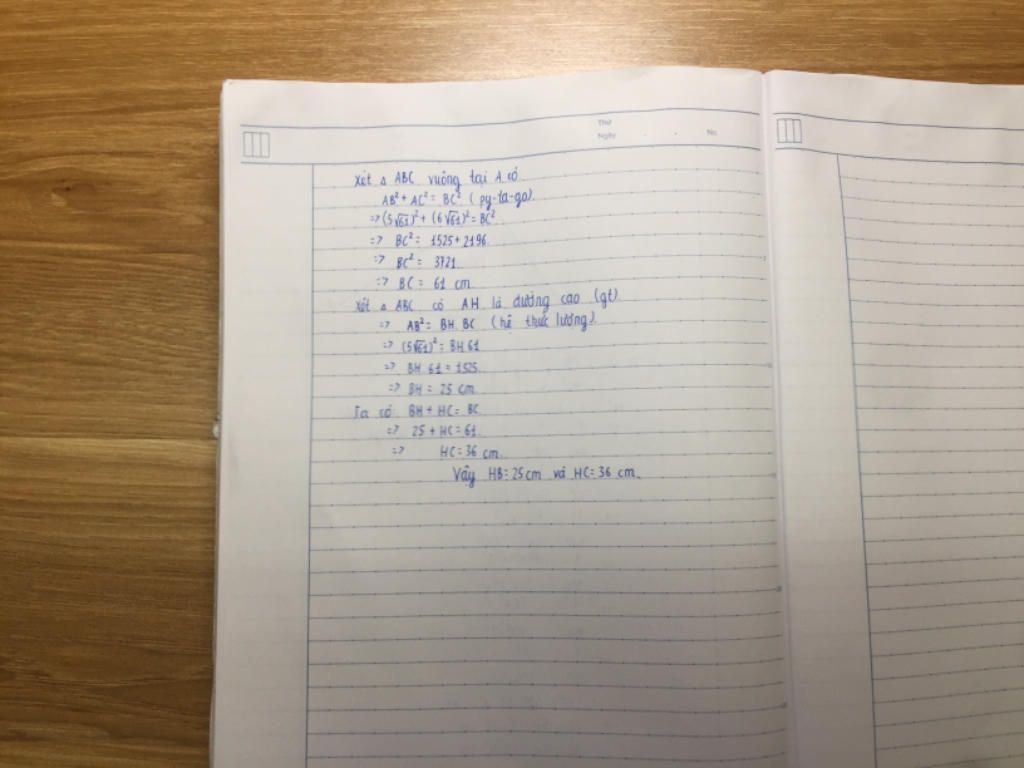 Thứ
Ngày . . No.
Xét Δ ABC vuông tại A có
AB² + AC² = BC² (py-ta-go).
=> (5√61)² + (6√61)² = BC²
=> BC² = 1525 + 2196.
=> BC² = 3721.
=> BC = 61 cm
Xét Δ ABC có AH là đường cao (gt)
=> AB² = BH.BC (hệ thức lượng).
=> (5√61)² = BH.61
=> BH.61 = 1525.
=> BH = 25 cm
Ta có BH + HC = BC
=> 25 + HC = 61.
=> HC = 36 cm.
Vậy HB = 25 cm và HC = 36 cm.